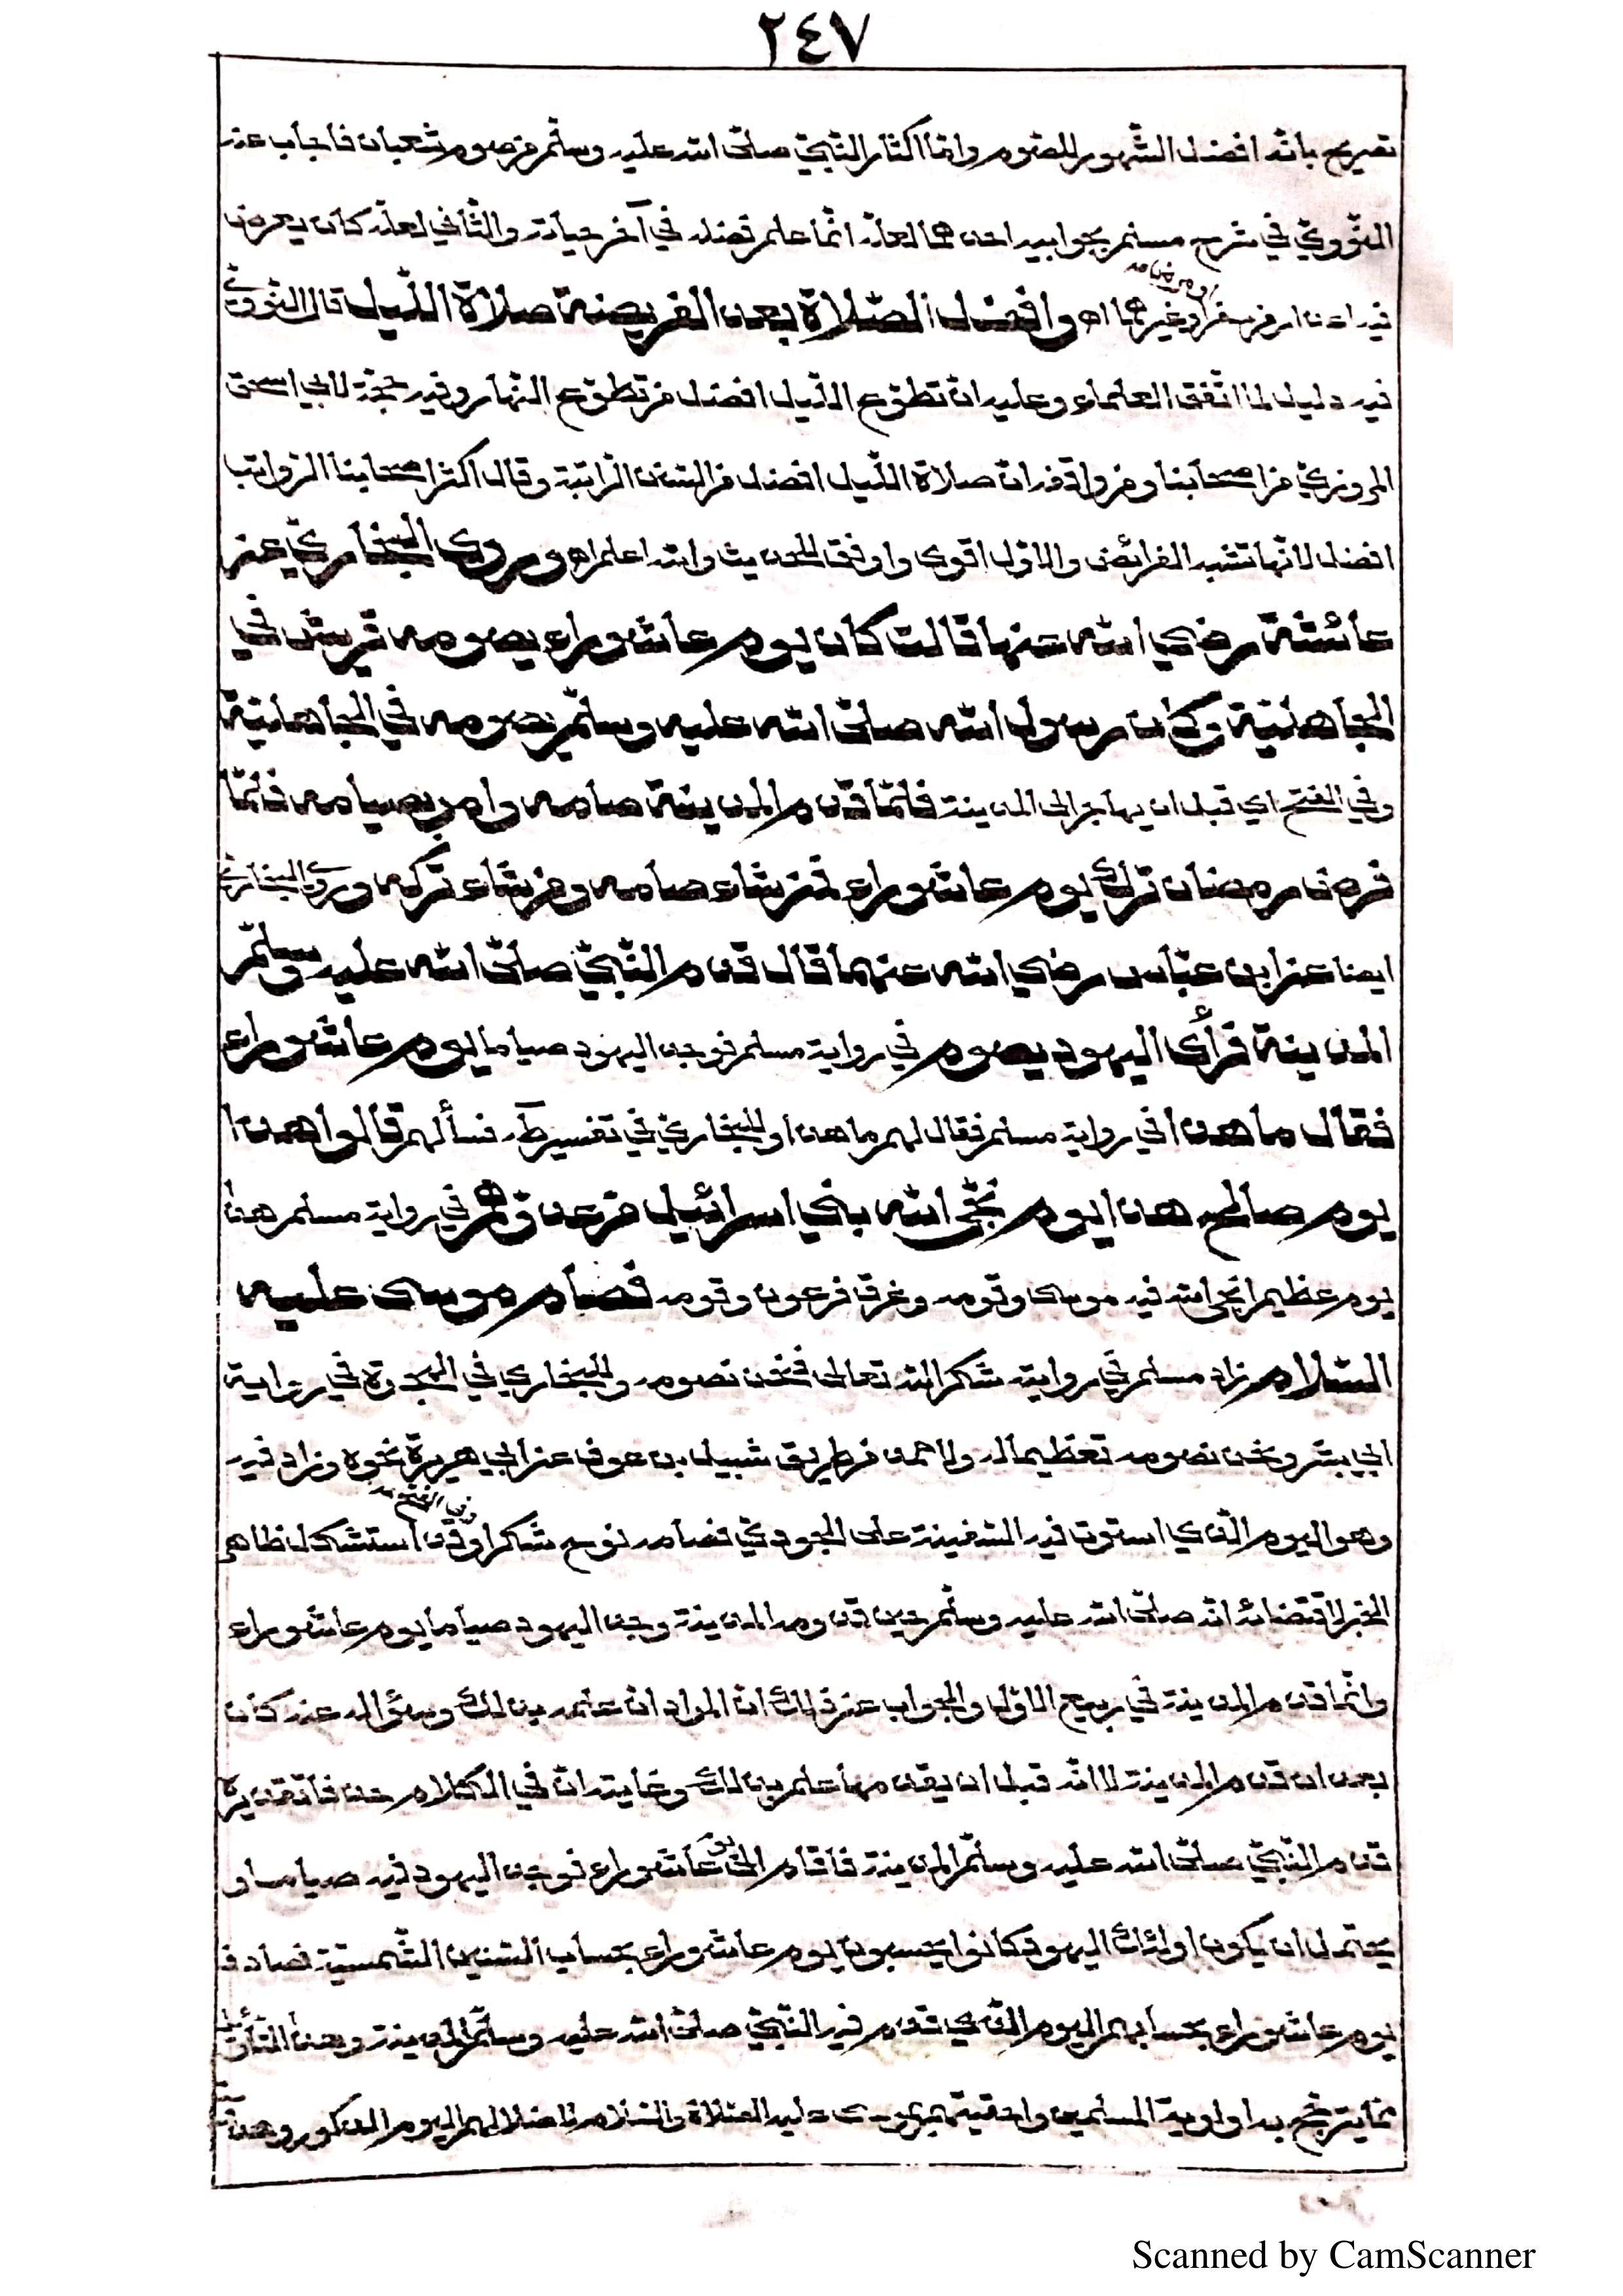 ٢٤٧
تصريح بانّه افضل الشّهور للصّوم وامّا اكثار النّبيّ صلّى الله عليه وسلّم من صوم شعبان فاجاب عنه
النّوويّ في شرح مسلم بجوابين احدهما لعلّه انّما علم فضله في آخر حياته والثّاني لعلّه كان يعرض
فيه اعذار من سفر او مرض او غيرهما اه وافضل الصّلاة بعد الفريضة صلاة اللّيل قال النّوويّ
فيه دليل لما اتّفق العلماء وعليه انّ تطوّع اللّيل افضل من تطوّع النّهار وفيه حجّة لابي اسحق
المروزيّ من اصحابنا ومن وافقه انّ صلاة اللّيل افضل من السّنن الرّاتبة وقال اكثر اصحابنا الرّواتب
افضل لانّها تشبه الفرائض والاوّل اقوى واوفق للحديث والله اعلم اه وروى البخاريّ عن
عائشة رضي الله عنها قالت كان يوم عاشوراء يصومه قريش في
الجاهليّة وكان رسول الله صلّى الله عليه وسلّم يصومه في الجاهليّة
وفي الفتح اي قبل ان يهاجر الى المدينة فلمّا قدم المدينة صامه وامر بصيامه فلمّا
فرض رمضان ترك يوم عاشوراء فمن شاء صامه ومن شاء تركه وروى البخاريّ
ايضا عن ابن عبّاس رضي الله عنهما قال قدم النّبيّ صلّى الله عليه وسلّم
المدينة فرأى اليهود يصوم في رواية مسلم فوجد اليهود صياما يوم عاشوراء
فقال ما هذا في رواية مسلم فقال لهم ما هذا وللبخاريّ في تفسير طه فسألهم قالوا هذا
يوم صالح هذا يوم نجّى الله بني اسرائيل من عدوّهم في رواية مسلم هذا
يوم عظيم انجى الله فيه موسى وقومه وغرق فرعون وقومه فصام موسى عليه
السّلام زاد مسلم في روايته شكرا لله تعالى فنحن نصومه وللبخاري في الهجرة في رواية
ابي بشر ونحن نصومه تعظيما له ولاحمد من طريق شبيل بن عوف عن ابي هريرة نحوه وزاد فيه
وهو اليوم الّذي استوت فيه السّفينة على الجوديّ فصامه نوح شكرا وفي الفتح وقد استشكل ظاهر
الخبر لاقتضائه انّه صلّى الله عليه وسلّم حين قدومه المدينة وجد اليهود صياما يوم عاشوراء
وانّما قدم المدينة في ربيع الاوّل والجواب عن ذلك انّ المراد انّ علمه بذلك وسؤاله عنه كان
بعد ان قدم المدينة لا انّه قبل ان يقدمها علم بذلك وغايته انّ في الكلام حذفا تقديره
قدم النّبيّ صلّى الله عليه وسلّم المدينة فاقام الى يوم عاشوراء فوجد اليهود فيه صياما و
يحتمل ان يكون اولئك اليهود كانوا يحسبون يوم عاشوراء بحساب السّنين الشّمسيّة فصادف
يوم عاشوراء بحسابهم اليوم الّذي قدم فيه النّبيّ صلّى الله عليه وسلّم المدينة وهذا التّأويل
ممّا يترجّح به اولوية المسلمين واحقّيتهم بموسى عليه الصّلاة والسّلام لاضلالهم اليوم المذكور وهداية
Scanned by CamScanner